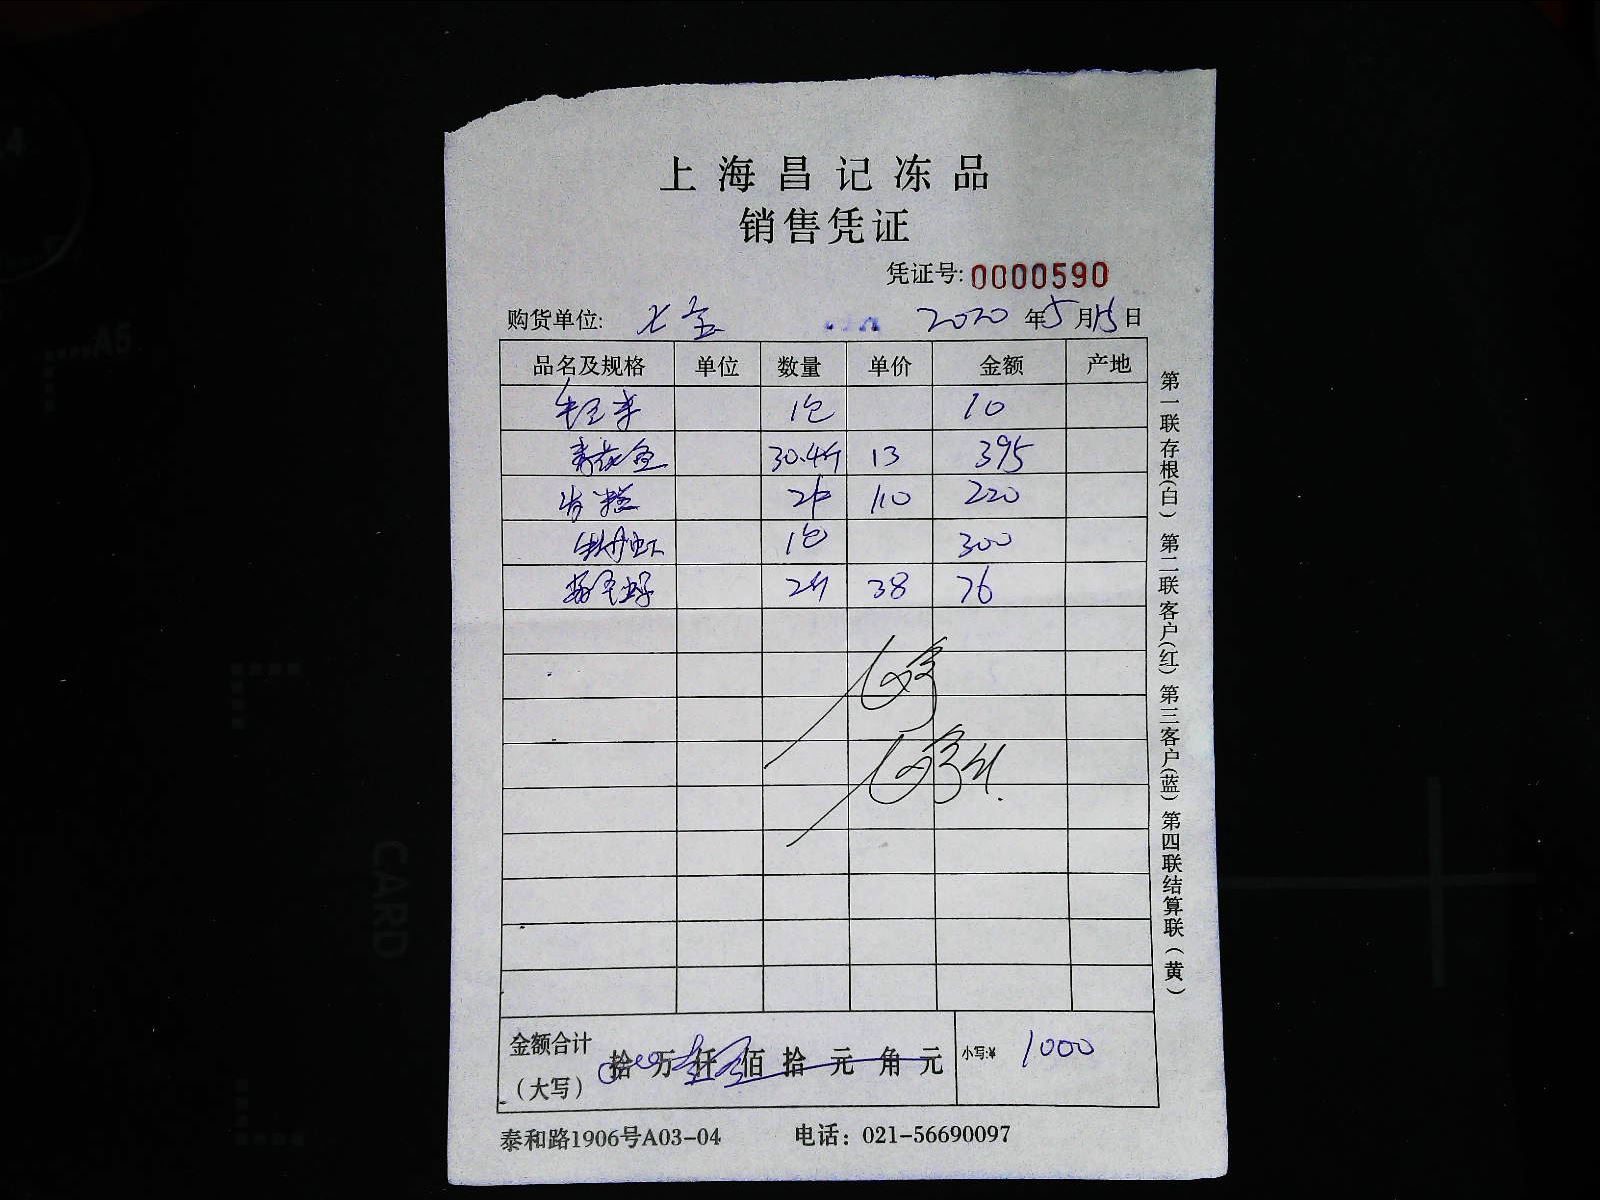 上海昌记冻品
销售凭证
凭证号: 0000590
购货单位: 七宝 2020年5月15日
品名及规格 单位 数量 单价 金额 产地
1包 10
青花鱼 30.4斤 13 395
2斤 110 220
牡丹虾 1包 300
2斤 38 76
金额合计 拾万仟佰拾元角元 小写:¥ 1000
（大写）
泰和路1906号A03-04 电话：021-56690097
第一联存根(白) 第二联客户(红) 第三客户(蓝) 第四联结算联(黄)